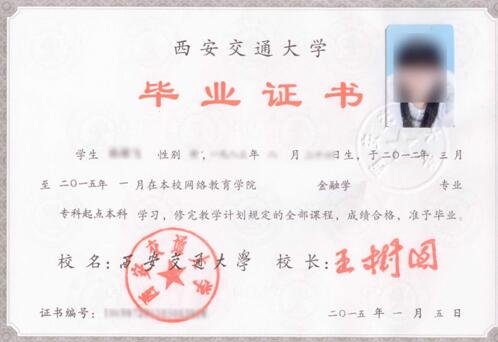 西安交通大学
毕业证书
学生 性别 年 月 日生，于二〇一二年 三月
至 二〇一五年 一月在本校网络教育学院 金融学 专业
专科起点本科 学习，修完教学计划规定的全部课程，成绩合格，准予毕业。
校 名：西安交通大學 校 长：王树国
西安交通大学
证书编号：
二〇一五年 一 月 五 日